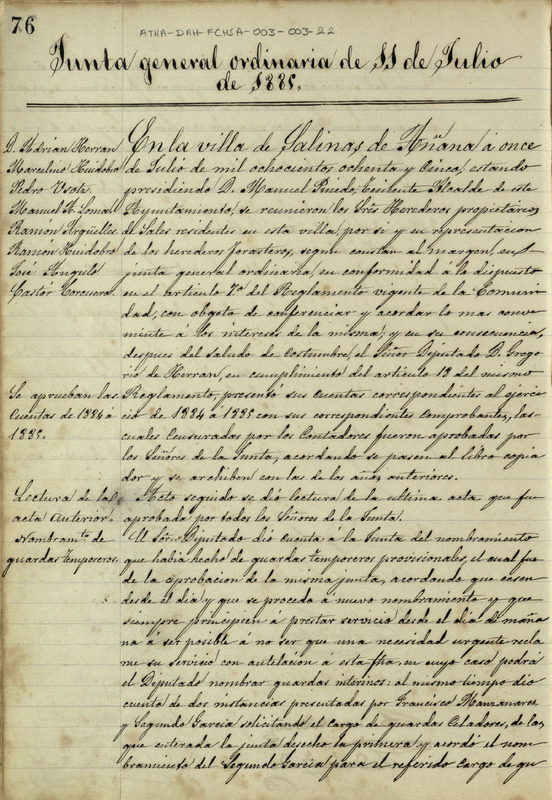 76
ATHA-DAH-FCHSA-003-003-22
Junta general ordinaria de 11 de Julio
de 1885.
D. Adrian Herran
Marcelino Huidobro
Pedro Usots.
Manuel H. Loma
Ramón Argüelles
Ramón Huidobro
José Angulo
Castór Corcuera.
En la villa de Salinas de Añana á once
de Julio de mil ochocientos ochenta y Cinco, estando
presidiendo D. Manuel Pinedo, teniente Alcalde de este
Ayuntamiento, se reunieron los Sres Herederos propietarios
de Sales residentes en esta villa, por si y en representacion
de los herederos forasteros, segun constan al margen, en
junta general ordinaria, en conformidad á lo dispuesto
en el articulo 7º del Reglamento vigente de la Comuni
dad, con obgeto de conferenciar y acordar lo mas conve
niente á los intereses de la misma, y en su consecuencia,
despues del saludo de costumbre, el Señor Diputado D. Grego
rio de Herran, en cumplimiento del articulo 13 del mismo
Se aprueban las
Cuentas de 1884 á
1885.
Reglamento, presentó sus cuentas correspondientes al ejerci
cio de 1884 á 1885 con sus correspondientes comprobantes, las
cuales Censuradas por los Contadores fueron aprobadas por
los Señores de la Junta, acordando se pasen al libro copia
dor y se archiben con las de los años anteriores.
Lectura de la
acta Anterior
Acto seguido se dió lectura de la ultima acta que fue
aprobada por todos los Señores de la Junta.
Nombramto. de
guardas temporeros.
El Sór. Diputado dió cuenta á la Junta del nombramiento
que habia hecho de guardas temporeros provisionales, el cual fue
de la aprobacion de la misma junta, acordando que cesen
desde el dia y que se proceda á nuevo nombramiento y que
siempre principien á prestar servicio desde el dia de maña
na á ser posible á no ser que una necesidad urgente recla
me su servicio con antelacion á esta fha. en cuyo caso podrá
el Diputado nombrar guardas interinos: al mismo tiempo dió
cuenta de dos instancias presentadas por Francisco Manzanares
y Segundo Garcia solicitando el cargo de guardas Celadores, de lo
que enterada la junta desechó la primera y acordó el nom
bramiento del Segundo Garcia para el referido cargo de gu